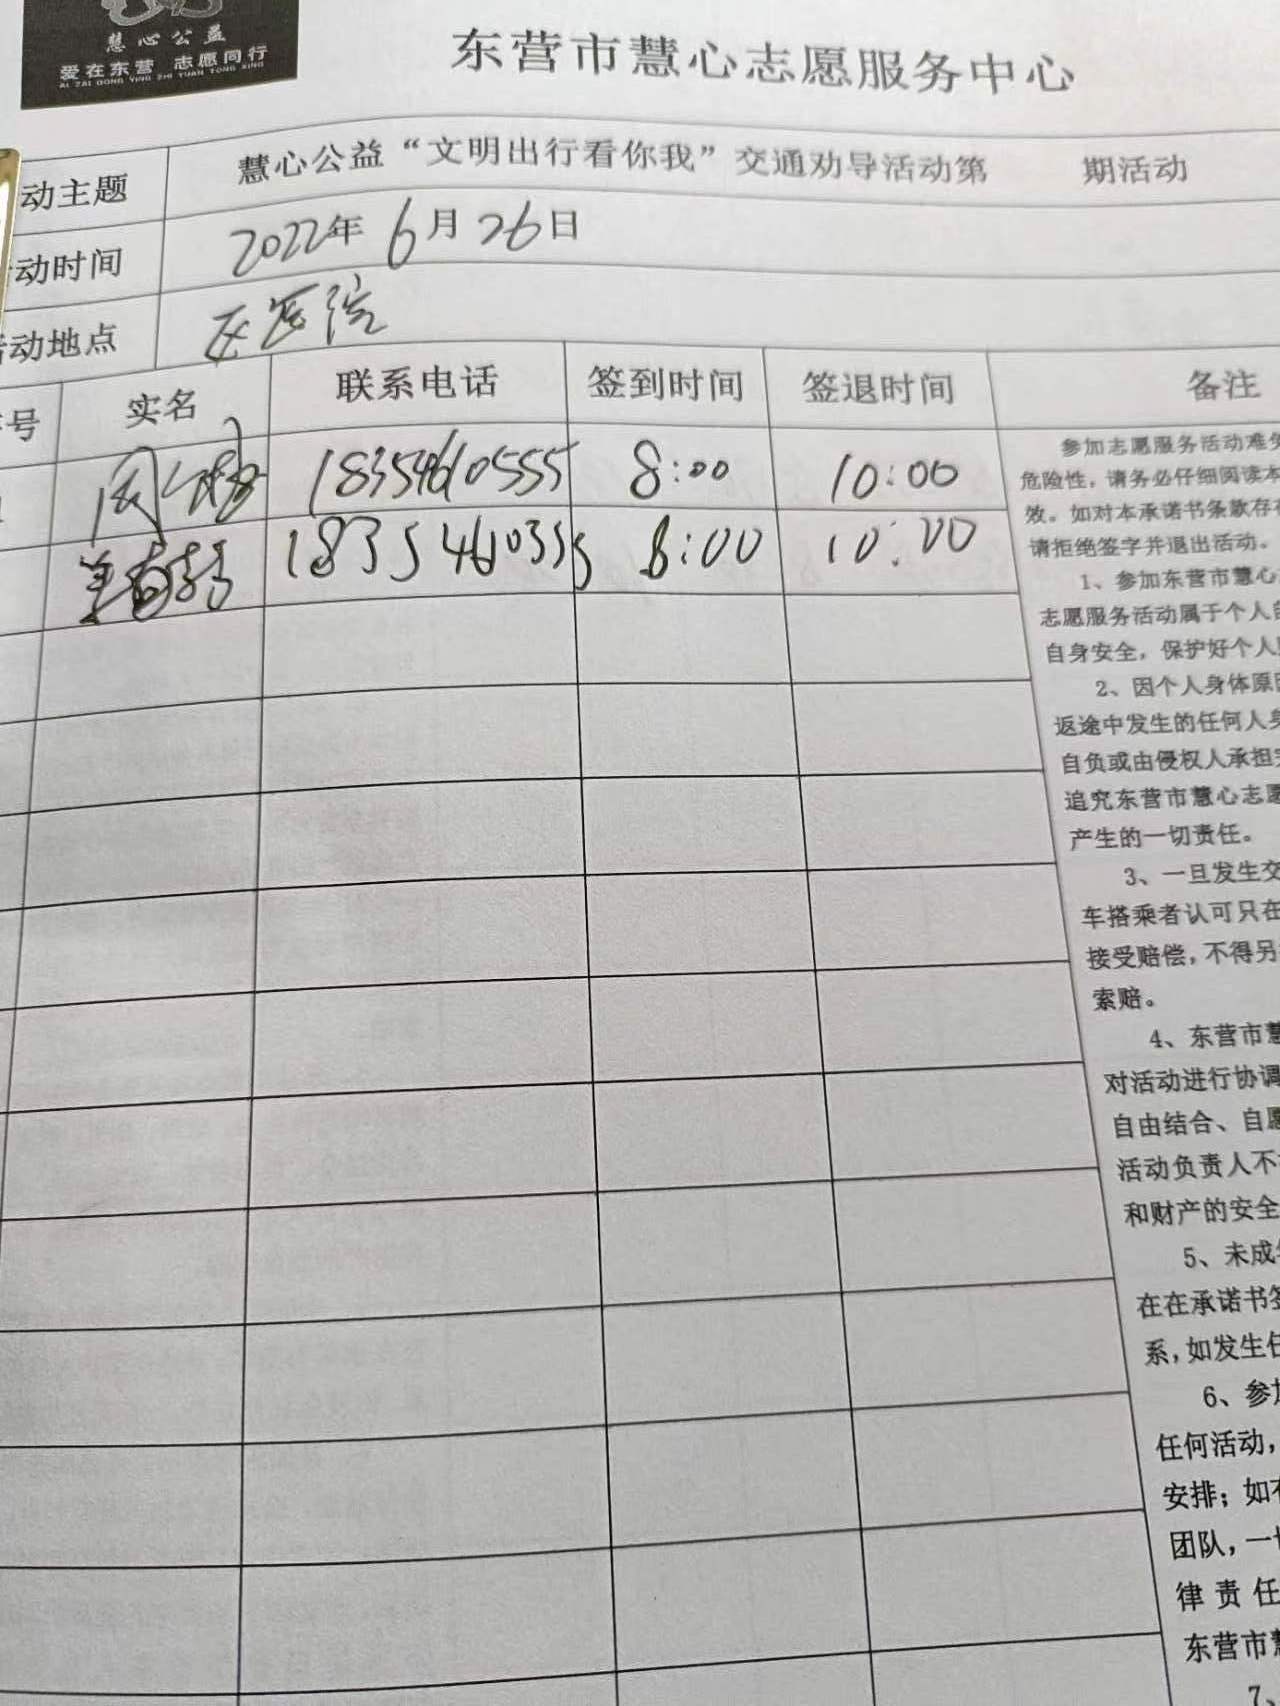 慧心公益
爱在东营 志愿同行
AI ZAI DONG YING ZHI YUAN TONG XING
东营市慧心志愿服务中心
动主题 慧心公益“文明出行看你我”交通劝导活动第 期活动
动时间 2022年6月26日
动地点 医院
号 实名 联系电话 签到时间 签退时间 备注
周 18354610555 8:00 10:00
18354610355 8:00 10:00
参加志愿服务活动难
危险性，请务必仔细阅读本
效。如对本承诺书条款存
请拒绝签字并退出活动。
1、参加东营市慧心
志愿服务活动属于个人
自身安全，保护好个人
2、因个人身体原
返途中发生的任何人
自负或由侵权人承担
追究东营市慧心志愿
产生的一切责任。
3、一旦发生交
车搭乘者认可只在
接受赔偿，不得另
索赔。
4、东营市慧
对活动进行协调
自由结合、自愿
活动负责人不
和财产的安全
5、未成
在在承诺书签
系，如发生任
6、参加
任何活动，
安排；如
团队，一
律责任
东营市慧
7、